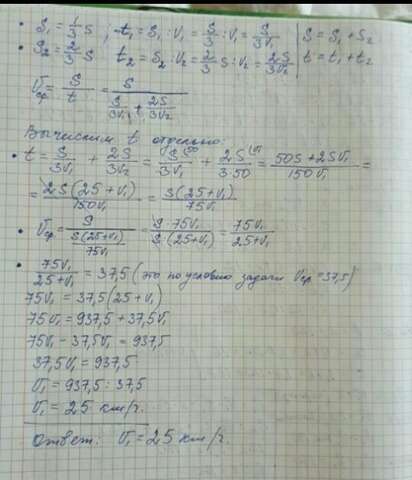 • S₁ = 1/3 S ; t₁ = S₁ : V₁ = S/3 : V₁ = S/3V₁ | S = S₁ + S₂
• S₂ = 2/3 S t₂ = S₂ : V₂ = 2/3 S : V₂ = 2S/3V₂ | t = t₁ + t₂
Vср = S/t = S/(S/3V₁ + 2S/3V₂)
Вычислим t отдельно:
• t = S/3V₁ + 2S/3V₂ = S/3V₁ + 2S/3·50 = (50S + 2SV₁)/150V₁ =
= 2S(25 + V₁)/150V₁ = S(25 + V₁)/75V₁
• Vср = S/(S(25+V₁)/75V₁) = S·75V₁/S·(25+V₁) = 75V₁/(25+V₁)
• 75V₁/(25+V₁) = 37,5 (это по условию задачи Vср = 37,5)
75V₁ = 37,5(25 + V₁)
75V₁ = 937,5 + 37,5V₁
75V₁ - 37,5V₁ = 937,5
37,5V₁ = 937,5
V₁ = 937,5 : 37,5
V₁ = 25 км/ч.
Ответ: V₁ = 25 км/ч.